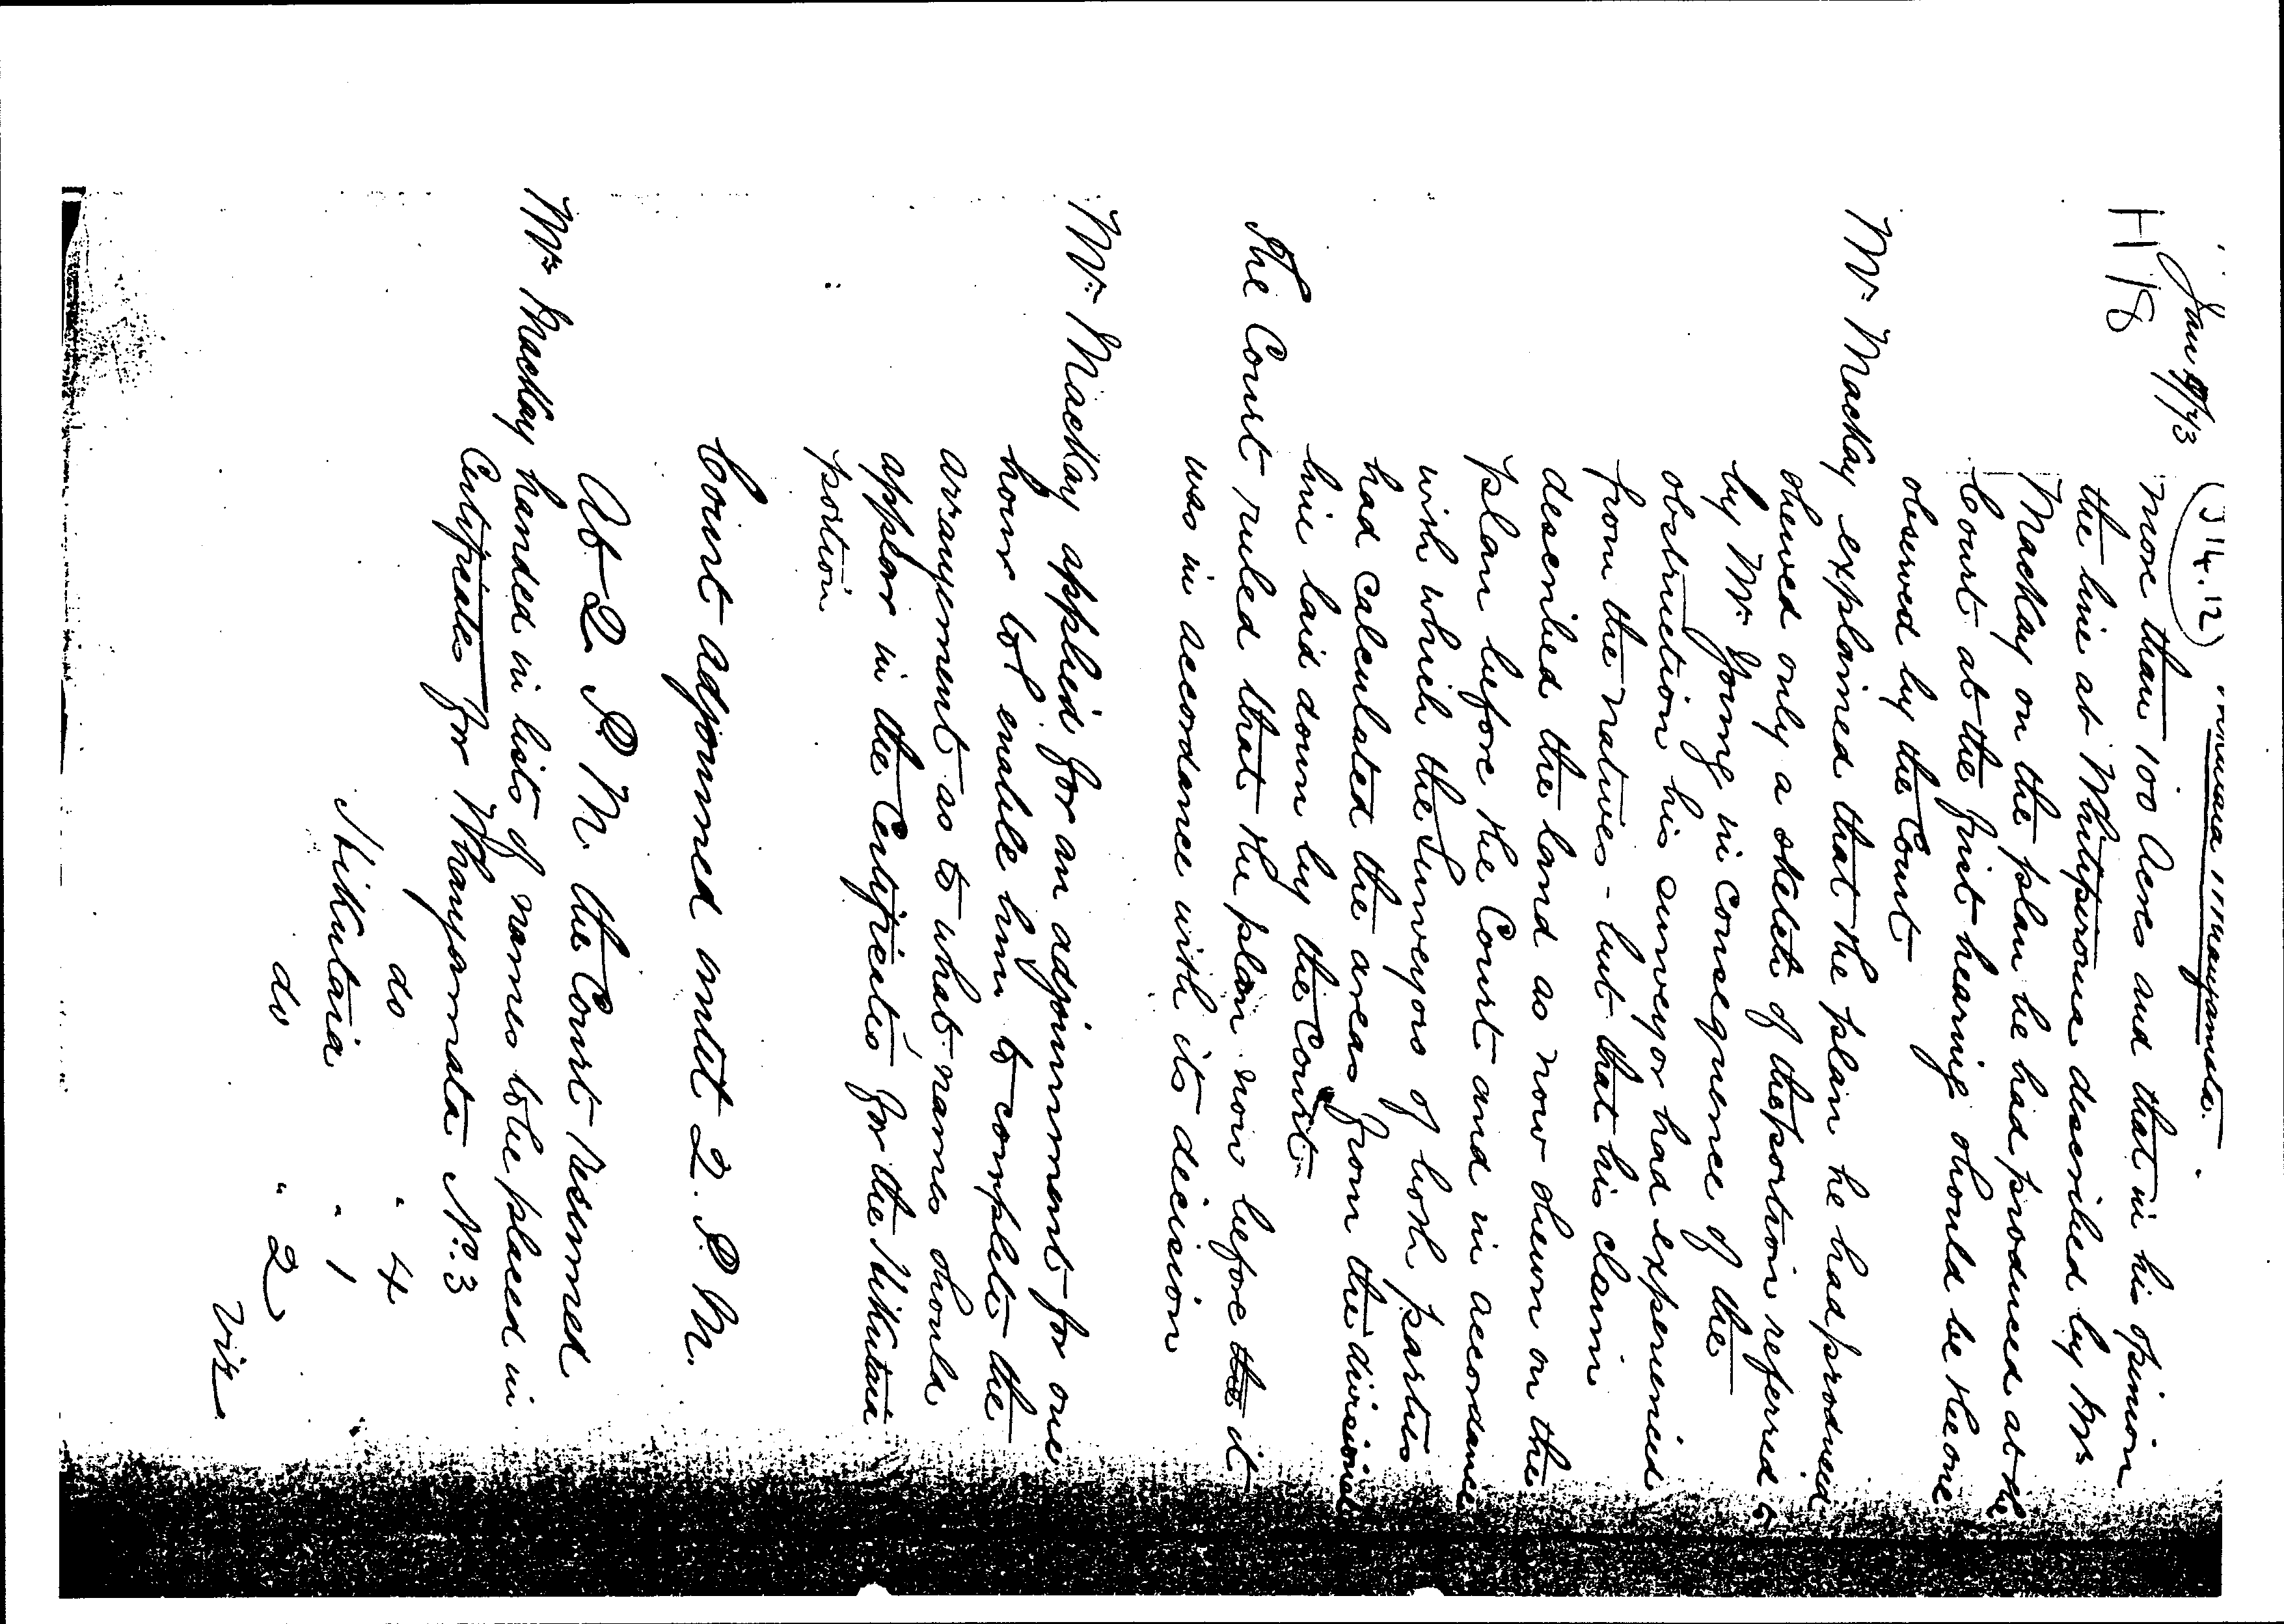 Whangamata.
(314.12)
H 18
more than 100 Acres and that in his opinion
the line at Whitipirorua described by Mr
Mackay on the plan he had produced at the
Court at the first hearing should be the one
observed by the Court
Mr. Mackay explained that the plan he had produced
shewed only a sketch of the portion referred to
by Mr. Young in consequence of the
obstruction his surveyor had experienced
from the natives - but that his claim
described the land as now shewn on the
plan before the Court and in accordance
with which the Surveyors of both parties
had calculated the areas from the divisional
line laid down by the Court -
The Court ruled that the plan now before the it
was in accordance with its decision
Mr. Mackay applied for an adjournment for one
hour to enable him to complete the
arrangement as to what names should
appear in the Certificates for the Hikutaia
portion
Court adjourned until 2. P. M.
At 2 P M. the Court resumed
Mr Mackay handed in lists of names to be placed in
Certificates for Whangamata No. 3
do " 4
Hikutaia " 1
do " 2
viz